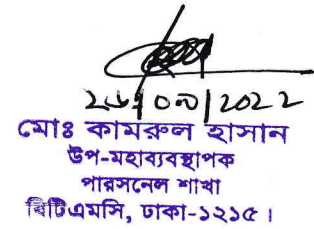 ২৬|০৯|২০২২
মোঃ কামরুল হাসান
উপ-মহাব্যবস্থাপক
পারসনেল শাখা
বিটিএমসি, ঢাকা-১২১৫।